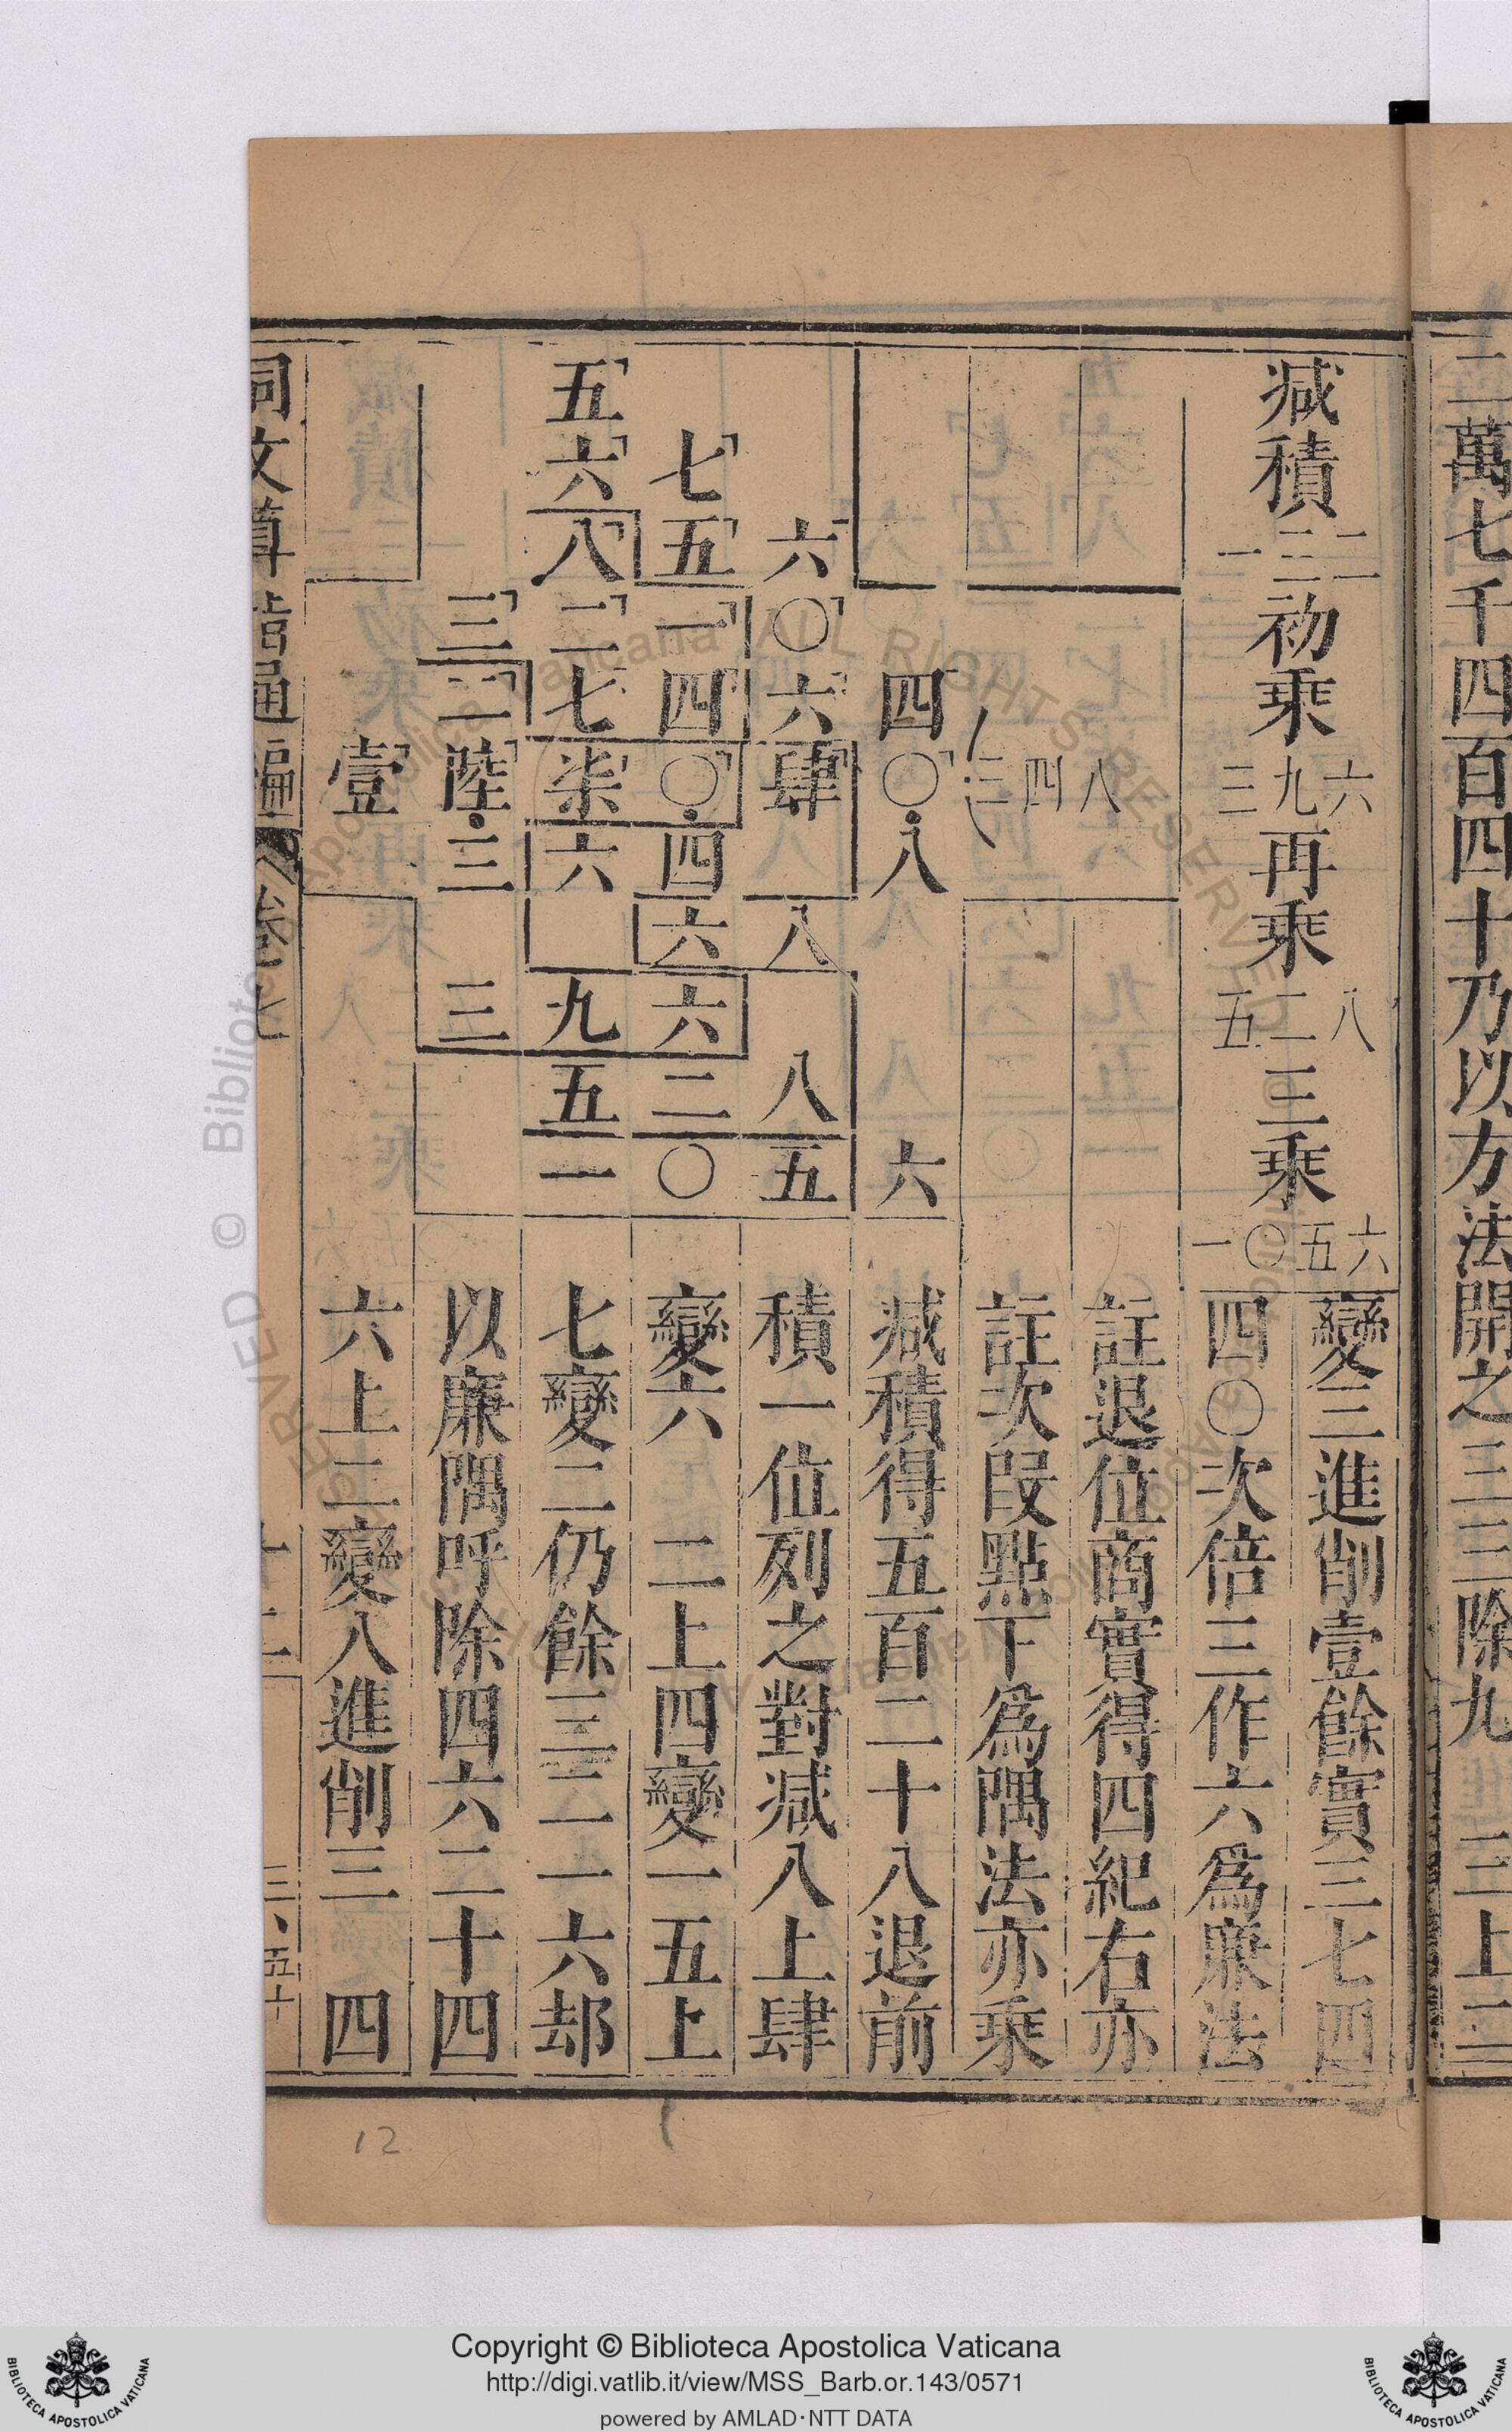 三萬七千四百四十乃以方法開之三三除九 三上二
減積 一三二 二一 初乘 三九六 再乘 五二八 三乘 一〇五六
變三進削壹餘實三七四
四〇次倍三作六爲廉法
註退位商實得四紀右亦
註次段點下爲隅法亦乘
減積得五百二十八退前
積一位列之對減八上肆
變六 二上四變一五上
七變二仍餘三二一六却
以廉隅呼除四六二十四
六上二變八進削三 四
三四八
四〇八 六
六〇六肆 八 八五
七五一四〇四六六二〇
五六八二七柒六 九五一
三二陸三 三
壹
同文算指通編 卷七
十二
三、五十
12
Copyright © Biblioteca Apostolica Vaticana
http://digi.vatlib.it/view/MSS_Barb.or.143/0571
powered by AMLAD·NTT DATA
BIBLIOTECA APOSTOLICA VATICANA
BIBLIOTECA APOSTOLICA VATICANA